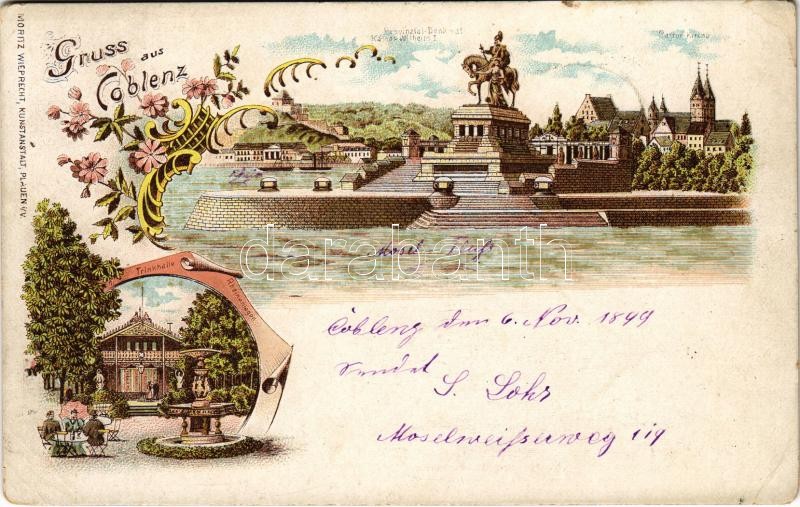 Gruss aus
Coblenz
Provinzial-Denkmal
Kaiser Wilhelm I
Castor Kirche
MORITZ WIEPRECHT, KUNSTANSTALT, PLAUEN i/V.
Mosel
darabanth
Trinkhalle
Rheinanlagen
Coblenz den 6. Nov. 1899
sendet
S. Lohr
Moselweisserweg 119